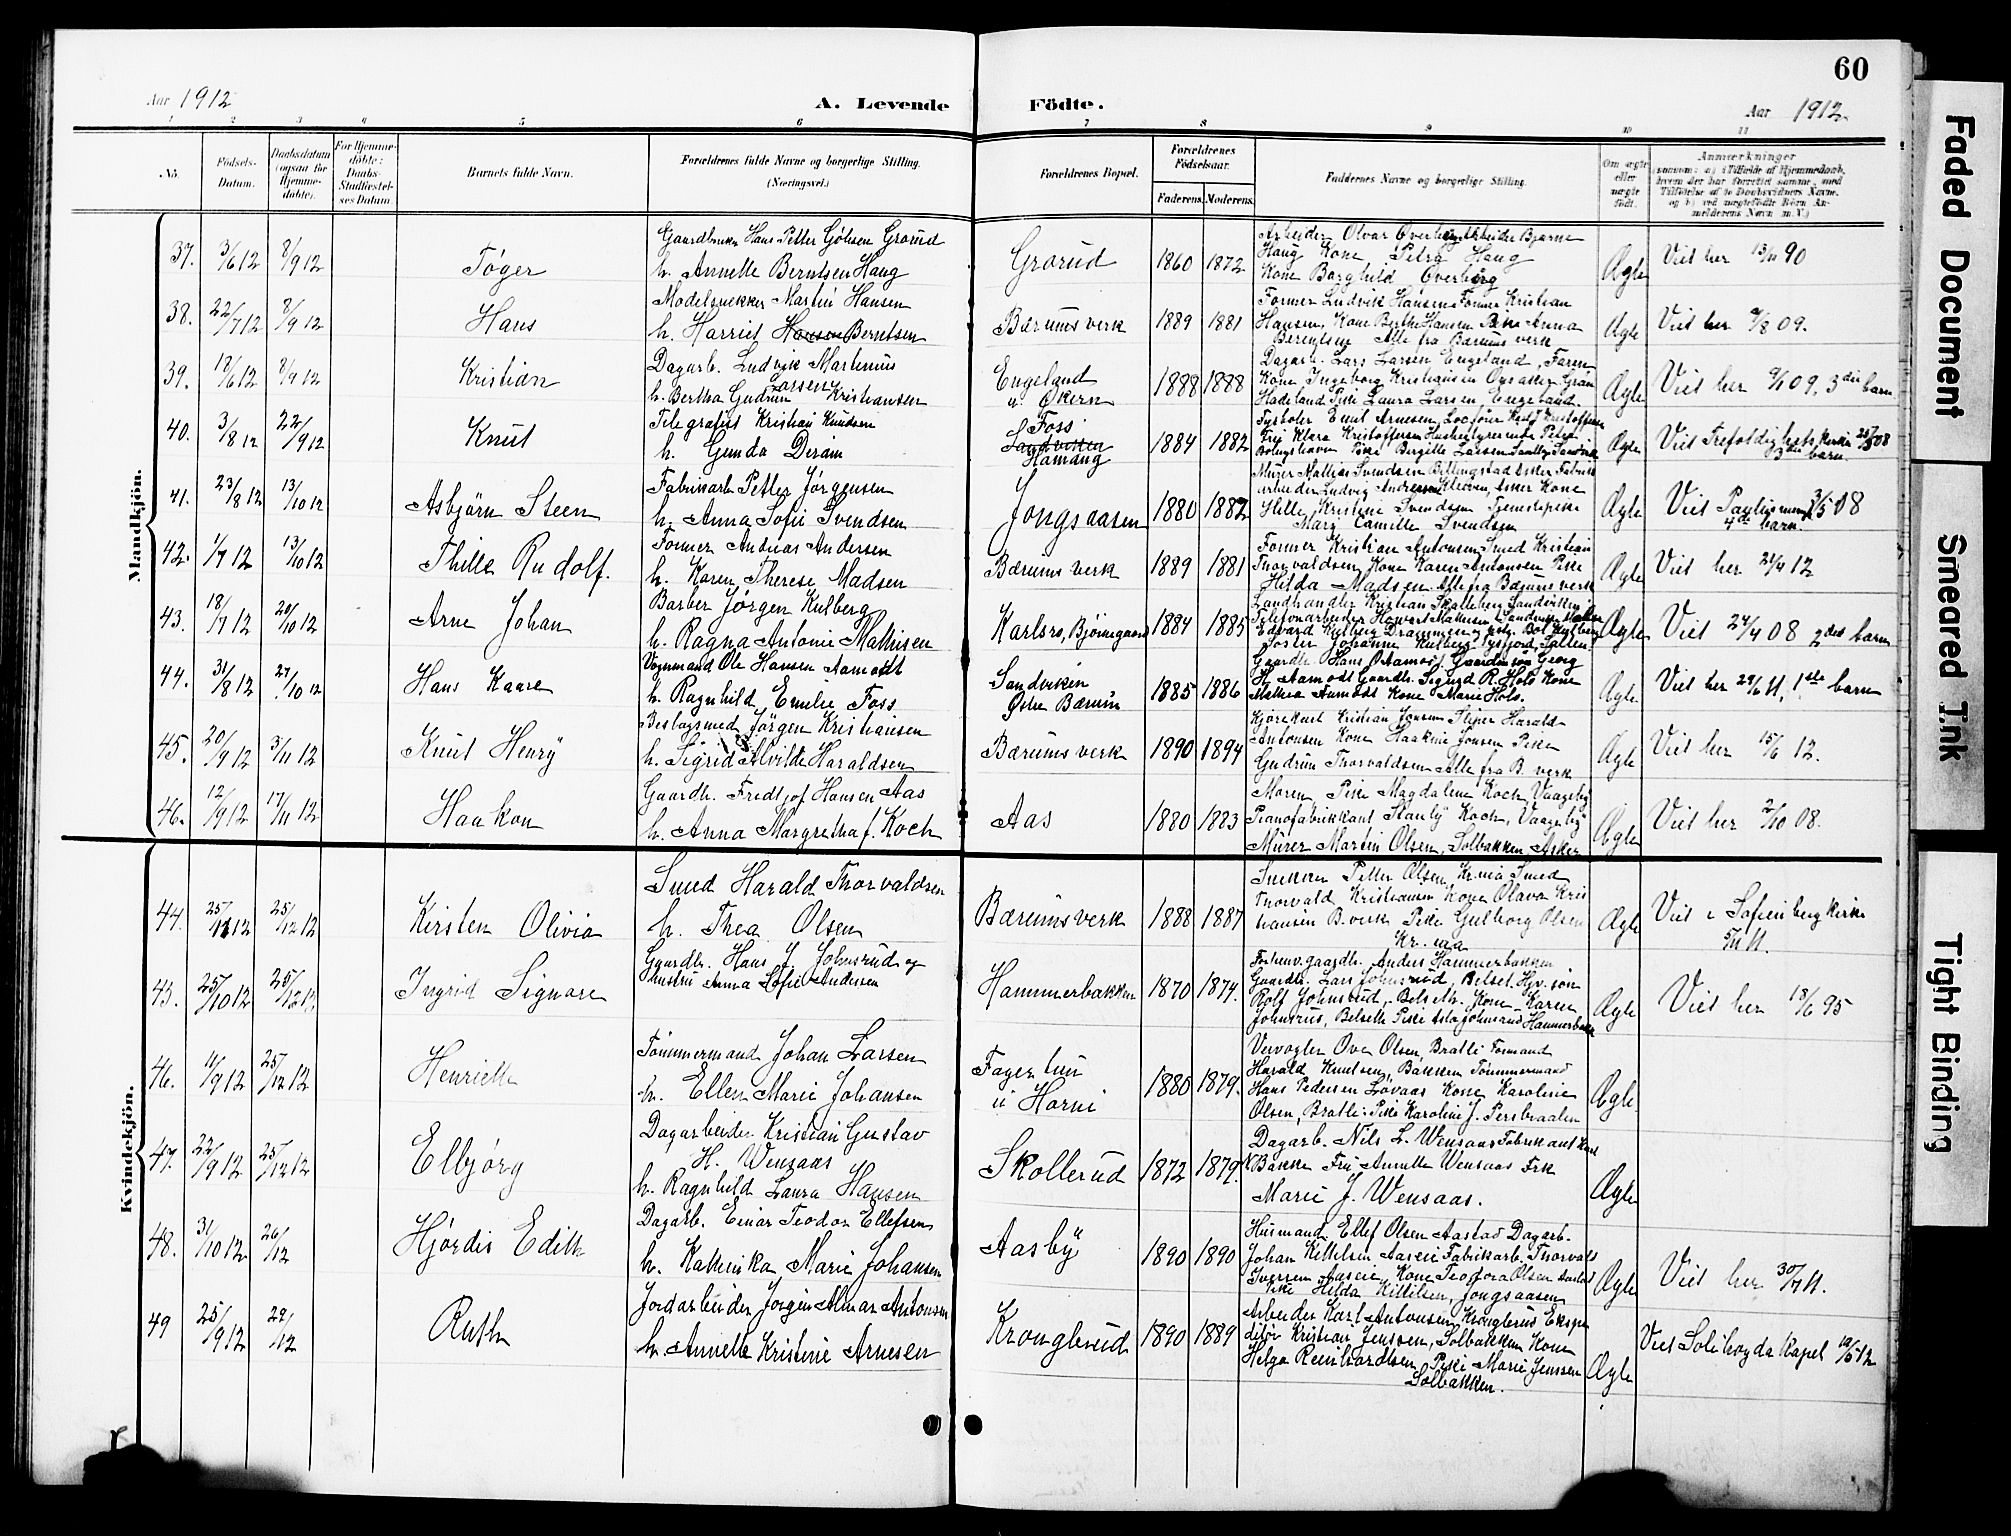 60
Aar 1912
A. Levende
Födte.
Aar 1912.
1 2 3 4 5 6 7 8 9 10 11
No.
Födsels-
Datum.
Daabsdatum
(ogsaa for
Hjemme-
döbte).
For Hjemme-
döbte:
Daabs-
Stadfæstel-
ses Datum.
Barnets fulde Navn.
Forældrenes fulde Navne og borgerlige Stilling.
(Næringsvei.)
Forældrenes Bopæl.
Forældrenes
Födselsaar.
Faderens. Moderens.
Faddernes Navne og borgerlige Stilling.
Om ægte
eller
uægte
födt.
Anmærkninger
Mandkjön.
37. 3/6 12 8/9 12 Tøger
Gaardbruker Hans Petter Gjølsen Grorud
h. Annette Berntsen Haug
Grorud 1860 1872
Arbeider Olvar Overberg Arbeider Bjarne
Haug Kone Petra Haug
Kone Borghild Overberg
Ægte
Viet her 13/11 90
38. 22/7 12 8/9 12 Hans
Modelsnekker Martin Hansen
h. Harriet Hansen Berntsen
Bærums verk 1889 1881
Former Ludvik Hansen Former Kristian
Hansen, Kone Berthe Hansen Pike Anna
Berentsen Alle fra Bærums verk
Ægte
Viet her 9/8 09.
39. 18/6 12 8/9 12 Kristian
Dagarb. Ludvik Martinius
Larsen
h. Bertha Gudrun Kristiansen
Engeland
u. Økern
1888 1888
Dagarb. Lars Larsen Engeland, Faren
Kone Ingeborg Kristiansen Opsaker Gran
Hadeland Pike Laura Larsen Engeland.
Ægte
Viet her 9/1 09, 3die barn
40. 3/8 12 22/9 12 Knut
Telegrafist Kristian Knudsen
h. Gunda Deram
Foss
Sandviken
Hamang
1884 1882
Ægte
Viet Trefoldighets kirke 25/3 08
3die barn
41. 23/8 12 13/10 12 Asbjørn Steen
Fabrikarb Petter Jørgensen
h. Anna Sofie Svendsen
Jongsaasen 1880 1882
Murer Mathias Svendsen Billingstad Asker Fabrik
arbeider Ludvig Andersen Kleven, Asker Kone
Hilke Kristine Svendsen Tjenestepike
Marg Camille Svendsen
Ægte
Viet Paulus menigh 3/5 08
4de barn.
42. 1/7 12 13/10 12 Thille Rudolf.
Former Andreas Andersen
h. Karen Therese Madsen
Bærums verk 1889 1881
Former Kristian Antonsen Smed Kristian
Thorvaldsen, Kone Karen Antonsen Pike
Hilda Madsen Alle fra Bærums verk
Ægte
Viet her 21/4 12
43. 18/7 12 20/10 12 Arne Johan
Barber Jørgen Kulberg
h. Ragna Antonie Mathisen
Karlsro, Bjørnegaard 1884 1885
Landhandler Kristian Skalleberg Sandviken
Ægte
Viet 24/4 08 2det barn
44. 31/8 12 27/10 12 Hans Kaare
Vognmand Ole Hansen Aamodt
h. Ragnhild Emelie Foss
Sandviken
Østre Bærum
1885 1886
Gaardbr. Hans O Aamodt Gaardmson Georg
H. Aamodt Gaardbr. Sigurd R. Hols Kone
Mathea Aamodt Kone Marie Hols.
Ægte
Viet her 29/6 11, 1ste barn
45. 20/9 12 3/11 12 Knut Henry
Beslagsmed Jörgen Kristiansen
h. Sigrid Alvilde Haraldsen
Bærums verk 1890 1894
Kjørekarl Kristian Jonsen Sliper Harald
Antonsen Kone Haakine Jonsen Pike
Gudrun Thorvaldsen Alle fra B. verk
Ægte
Viet her 15/6 12.
46. 12/9 12 17/11 12 Haakon
Gaardb. Fredtjof Hansen Aas
h. Anna Margretha f. Koch
Aas 1880 1883
Moren, Pike Magdalene Koch, Vaageby
Pianofabrikkant Stanly Koch, Vaageby
Murer Martin Olsen, Solbakken Asker
Ægte
Viet her 2/10 08.
Kvindekjön.
44. 25/11 12 25/12 12 Kirsten Olivia
Smed Harald Thorvaldsen
h. Thea Olsen
Bærums verk 1888 1887
Snekker Petter Olsen, Kr.nia Smed
Thorvald Kristiansen Kone Olava Kris
tiansen B. verk Pike Gulborg Olsen
Kr. nia
Ægte
Viet i Sofienberg kirke
5/11 11.
45. 25/10 12 25/12 12. Ingrid Signore
Gaardbr. Hans J Johnsrud og
hustru Anna Sofie Andersen
Hammerbakken 1870 1874.
Forhenv. gaardbr. Anders Hammerbakken
Gaardbr. Lars Johnsrud, Belset. Hjv. søn
Rolf Johnsrud, Belseth. Kone Karen
Johnsrud, Belseth Pike Asta Johnsrud Hammerbakk
Ægte
Viet her 18/6 95
46. 11/9 12 25/12 12 Henriette
Tømmermand Johan Larsen
h. Ellen Marie Johansen
Fagertun
u Horni
1880 1879.
Veivogter Ove Olsen, Bratli Formand
Harald Knutsen, Bakken Tømmermand
Hans Pedersen Løvaas Kone Karoline
Olsen, Bratli. Pike Karoline J. Persbraaten
Ægte
47. 22/9 12 25/12 12 Elbjørg
Dagarbeider Kristian Gustav
H. Wensaas
h. Ragnhild Laura Hansen
Skollerud 1872 1879.
Dagarb. Nils L. Wensaas Fabrikant Karl
N Bakke Fru Annette Wensaas Frk
Marie J. Wensaas.
Ægte
48. 31/10 12 26/12 Hjørdis Edith
Dagarb. Einar Teodor Ellefsen
h. Kathinka Marie Johansen
Aasby 1890 1890
Husmand Ellef Olsen Aastad Dagarb.
Johan Kittelsen Aaseie Fabrikarb. Thorvald
Iversen Aaseie, Kone Teodora Olsen Aastad
Pike Hilda Kittilsen, Jongsaasen
Ægte
Viet her 30/7 11.
49 25/9 12 29/12 Ruth
Jordarbeider Jørgen Almar Antonsen
h. Annette Kristine Arnesen
Kronglerud 1890 1889
Arbeider Karl Antonsen, Kronglerud Ekspe
ditør Kristian Jenssen, Solbakken Kone
Helga Reinhardtsen, Pike Marie Jenssen
Solbakken.
Ægte
Viet Solihøgda Kapel 12/5 12
Faded Document
Smeared Ink
Tight Binding